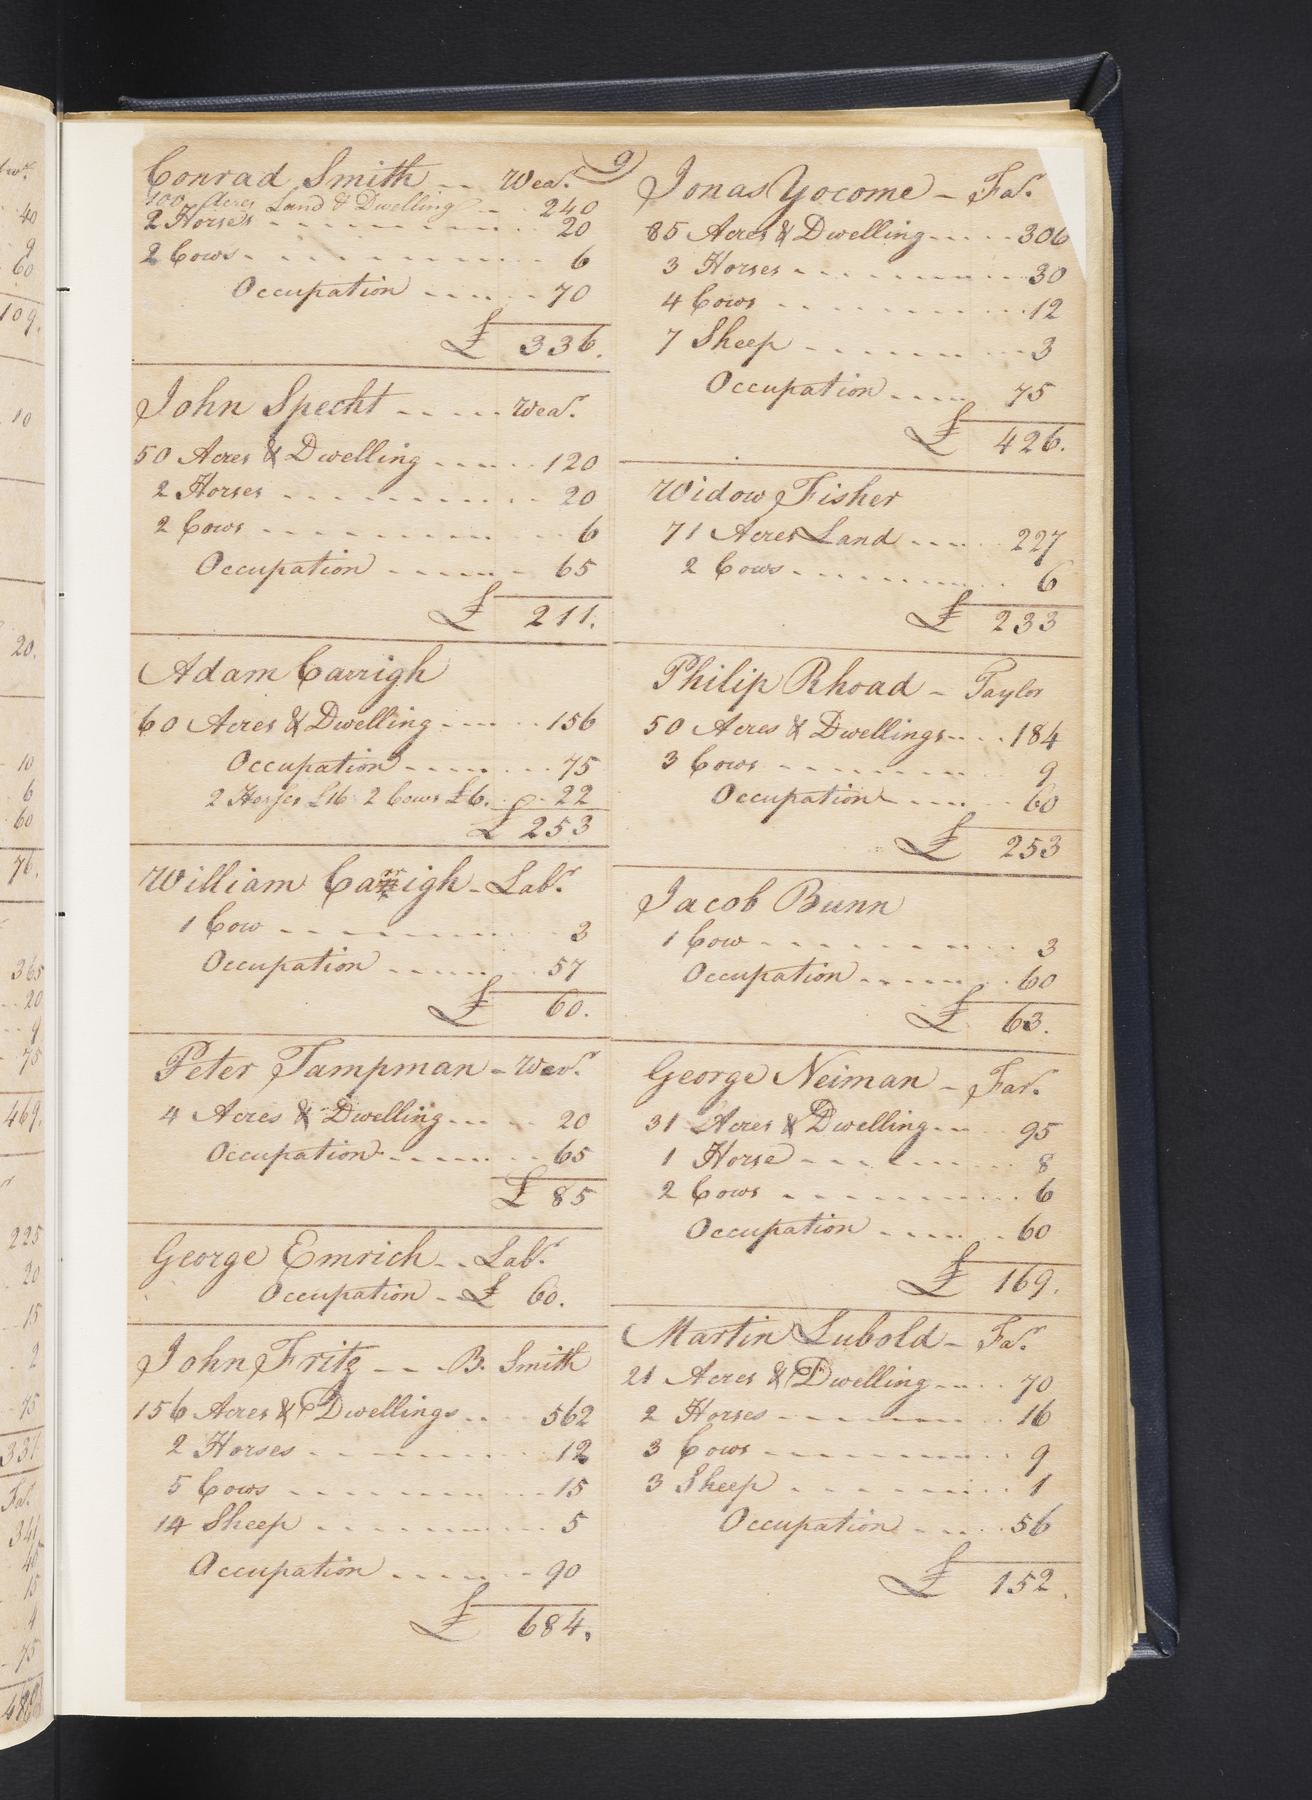 9
Conrad Smith -- Wea.r
100 Acres Land & Dwelling -- 240
2 Horses 20
2 Cows 6
Occupation 70
£ 336.
John Specht Wea.r
50 Acres & Dwelling 120
2 Horses 20
2 Cows 6
Occupation 65
£ 211.
Adam Carrigh
60 Acres & Dwelling 156
Occupation 75
2 Horses £16 2 Cows £6. 22
£ 253
William Carrigh - Lab.r
1 Cow 3
Occupation 57
£ 60.
Peter Tampman - Wea.r
4 Acres & Dwelling 20
Occupation 65
£ 85
George Emrich -- Lab.r
Occupation - £ 60.
John Fritz -- B. Smith
156 Acres & Dwellings 562
2 Horses 12
5 Cows 15
14 Sheep 5
Occupation 90
£ 684.
Jonas Yocome - Fa.r
85 Acres & Dwelling 306
3 Horses 30
4 Cows 12
7 Sheep 3
Occupation 75
£ 426.
Widow Fisher
71 Acres Land 227
2 Cows 6
£ 233
Philip Rhoad - Taylor
50 Acres & Dwellings 184
3 Cows 9
Occupation 60
£ 253
Jacob Bunn
1 Cow 3
Occupation 60
£ 63.
George Neiman - Far.
31 Acres & Dwelling 95
1 Horse 8
2 Cows 6
Occupation 60
£ 169.
Martin Lubold - Fa.r
21 Acres & Dwelling 70
2 Horses 16
3 Cows 9
3 Sheep 1
Occupation 56
£ 152.